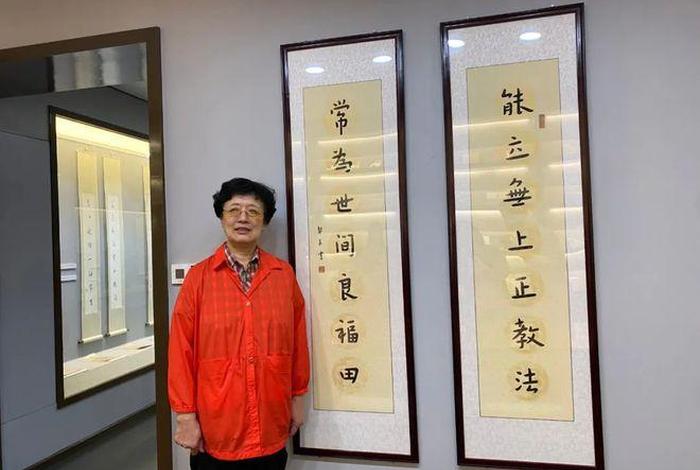 能立無上正教法
常為世間良福田